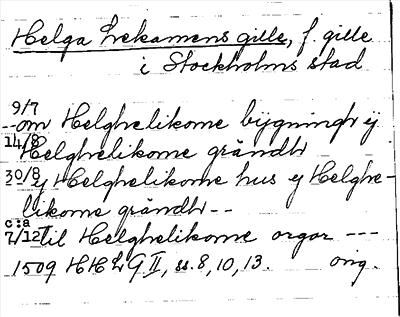 Helga Lekamens gille, f. gille
i Stockholms stad
9/7
--om Helghelikome bygningh ij
14/8
Helghelikome grändh
30/8 ij Helghelikome hus ij Helghe-
likome grändh--
c:a
7/12 til Helghelikome orgor ---
1509 HHLG II, ss. 8, 10, 13. orig.